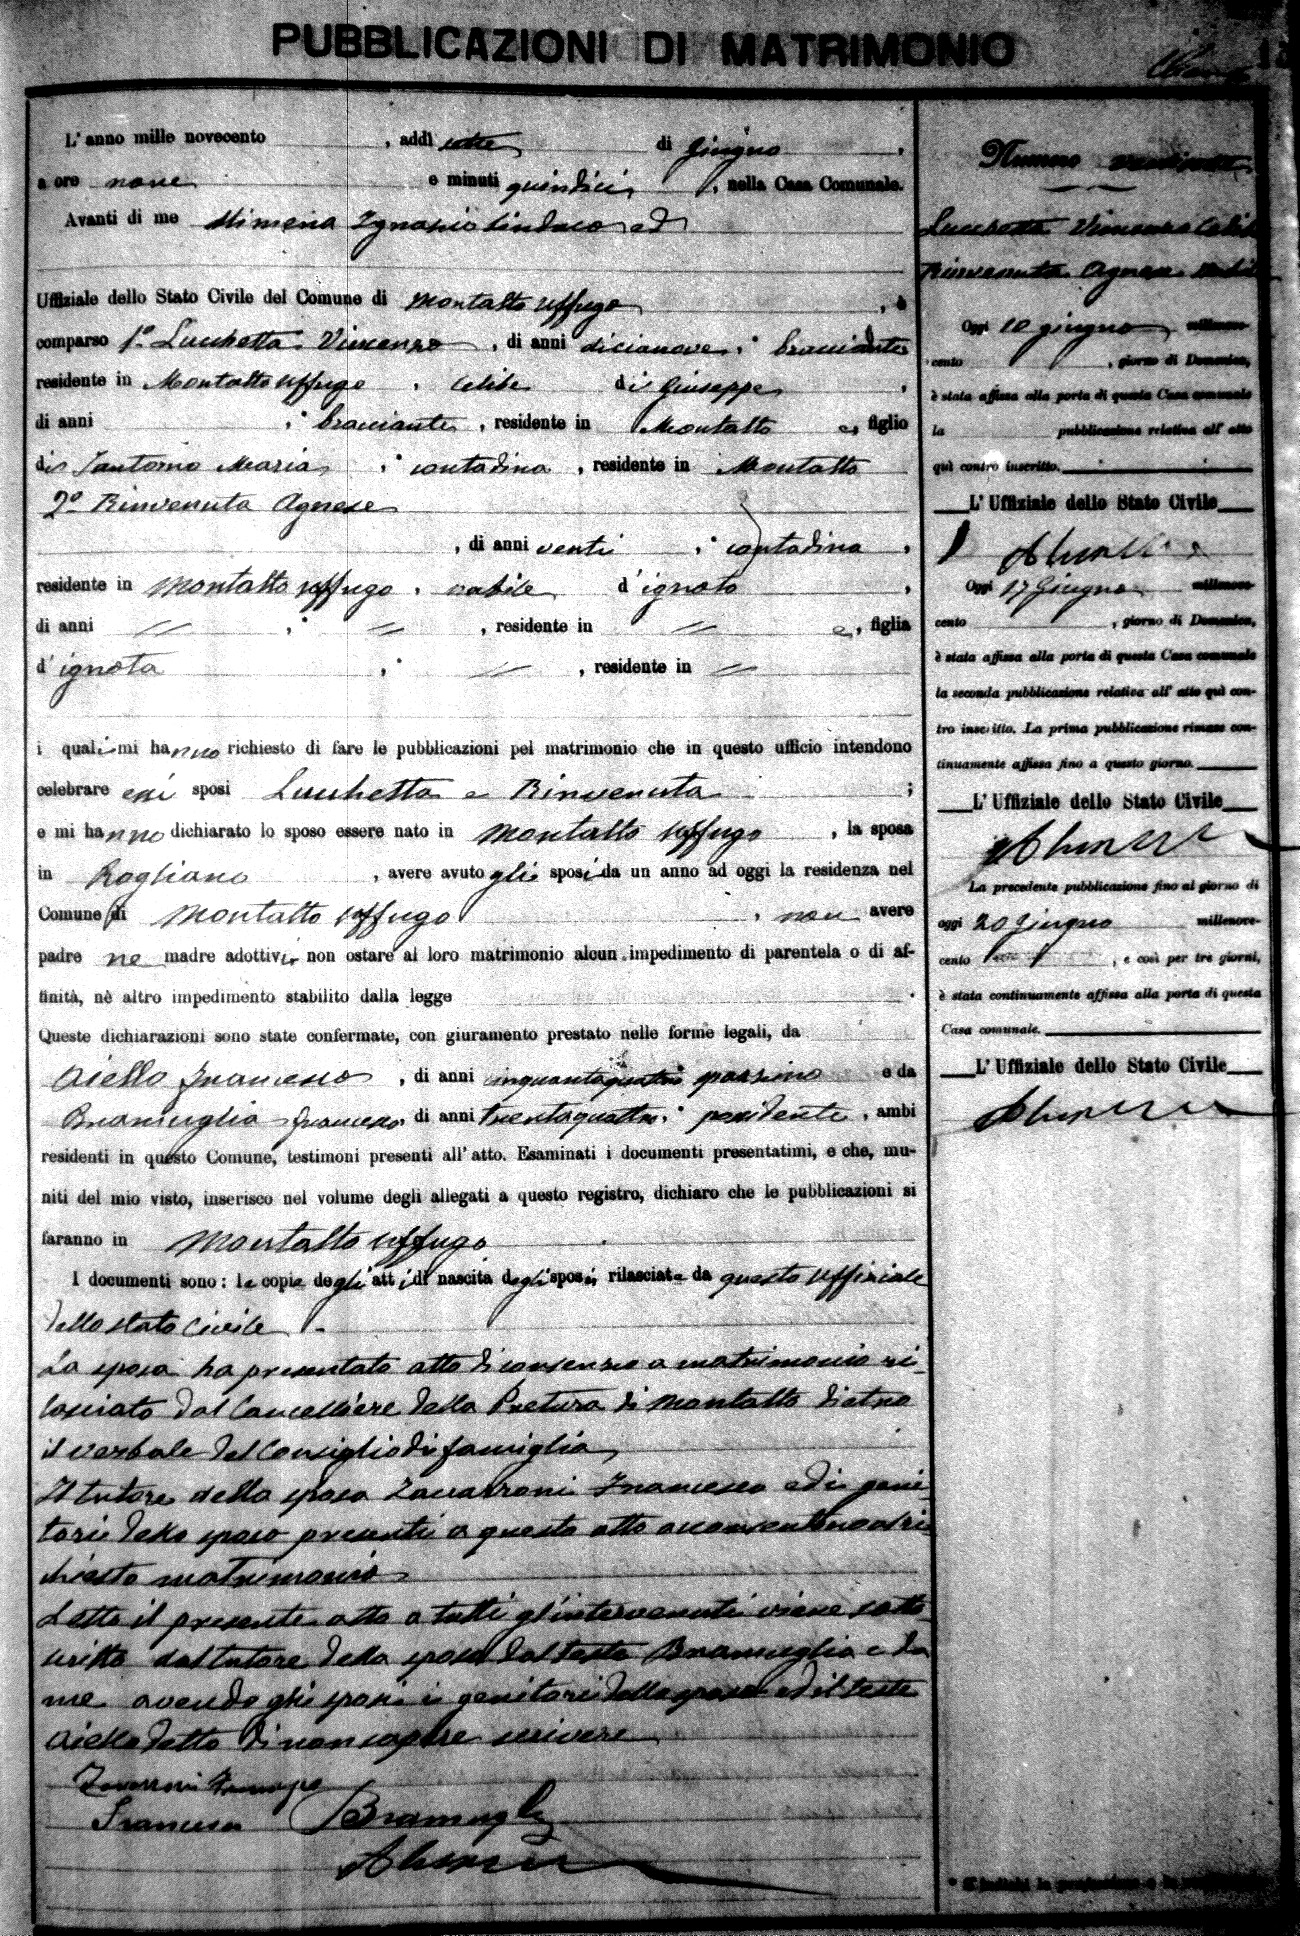 PUBBLICAZIONI DI MATRIMONIO
L'anno mille novecento , addì sette di Giugno ,
a ore nove e minuti quindici , nella Casa Comunale.
Avanti di me Ignazio Sindaco ed
Uffiziale dello Stato Civile del Comune di Montalto Uffugo , è
comparso 1° Lucchetta Vincenzo , di anni dicianove , * bracciante
residente in Montalto Uffugo , celibe di Giuseppe ,
di anni , * bracciante , residente in Montalto e , figlio
di Santorno Maria , * contadina , residente in Montalto
2° Rinvenuta Agnese
, di anni venti , * contadina ,
residente in Montalto Uffugo , nubile d'ignoto ,
di anni // , * // , residente in // e , figlia
d'ignota , * // , residente in //
i quali mi hanno richiesto di fare le pubblicazioni pel matrimonio che in questo ufficio intendono
celebrare essi sposi Lucchetta e Rinvenuta ;
e mi hanno dichiarato lo sposo essere nato in Montalto Uffugo , la sposa
in Rogliano , avere avuto gli sposi da un anno ad oggi la residenza nel
Comune di Montalto Uffugo , non avere
padre ne madre adottivi, non ostare al loro matrimonio alcun impedimento di parentela o di af-
finità, nè altro impedimento stabilito dalla legge .
Queste dichiarazioni sono state confermate, con giuramento prestato nelle forme legali, da
Aiello Francesco , di anni cinquantaquattro e da
Bramuglia Francesco, di anni trentaquattro, * possidente , ambi
residenti in questo Comune, testimoni presenti all'atto. Esaminati i documenti presentatimi, e che, mu-
niti del mio visto, inserisco nel volume degli allegati a questo registro, dichiaro che le pubblicazioni si
faranno in Montalto Uffugo .
I documenti sono: le copie degli atti di nascita degli sposi rilasciate da questo Uffiziale
dello stato civile .
La sposa ha presentato atto di consenso a matrimonio ri-
lasciato dal Cancelliere della Pretura di Montalto dietro
il verbale del Consiglio di famiglia
Il tutore della sposa Zavarroni Francesco ed i geni-
tori dello sposo presenti a questo atto acconsentono al ri-
chiesto matrimonio
Letto il presente atto a tutti gl'intervenuti viene sotto-
scritto dal tutore della sposa dal teste Bramuglia e da
me avendo gli sposi i genitori dello sposo ed il teste
Aiello detto di non sapere scrivere
Francesco Bramuglia
Numero
Lucchetta Vincenzo Celibe
Rinvenuta Agnese Nubile
Oggi 10 giugno millenove-
cento , giorno di Domenica,
è stata affissa alla porta di questa Casa comunale
la pubblicazione relativa all'atto
quì contro inscritto.
L'Uffiziale dello Stato Civile
Oggi 17 Giugno millenove-
cento , giorno di Domenica,
è stata affissa alla porta di questa Casa comunale
la seconda pubblicazione relativa all'atto quì con-
tro inscritto. La prima pubblicazione rimase con-
tinuamente affissa fino a questo giorno.
L'Uffiziale dello Stato Civile
La precedente pubblicazione fino al giorno di
oggi 20 Giugno millenove-
cento , e così per tre giorni,
è stata continuamente affissa alla porta di questa
Casa comunale.
L'Uffiziale dello Stato Civile